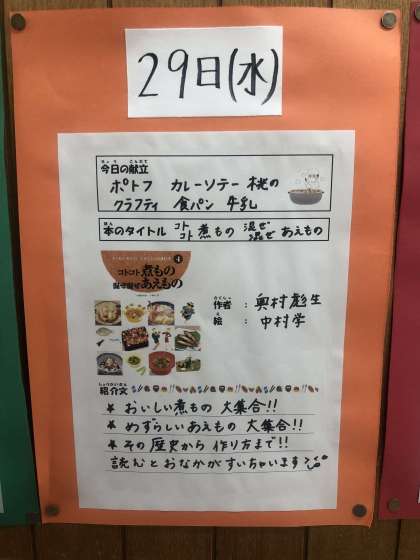 29日(水)
今日の献立
ポトフ カレーソテー 桃の
クラフティ 食パン 牛乳
本のタイトル コトコト煮もの 混ぜ混ぜあえもの
4
コトコト煮もの
混ぜ混ぜあえもの
作者 : 奥村彪生
絵 : 中村学
紹介文
★ おいしい煮もの 大集合!!
★ めずらしいあえもの 大集合!!
★ その歴史から 作り方まで!!
読むとおなかがすいちゃいます